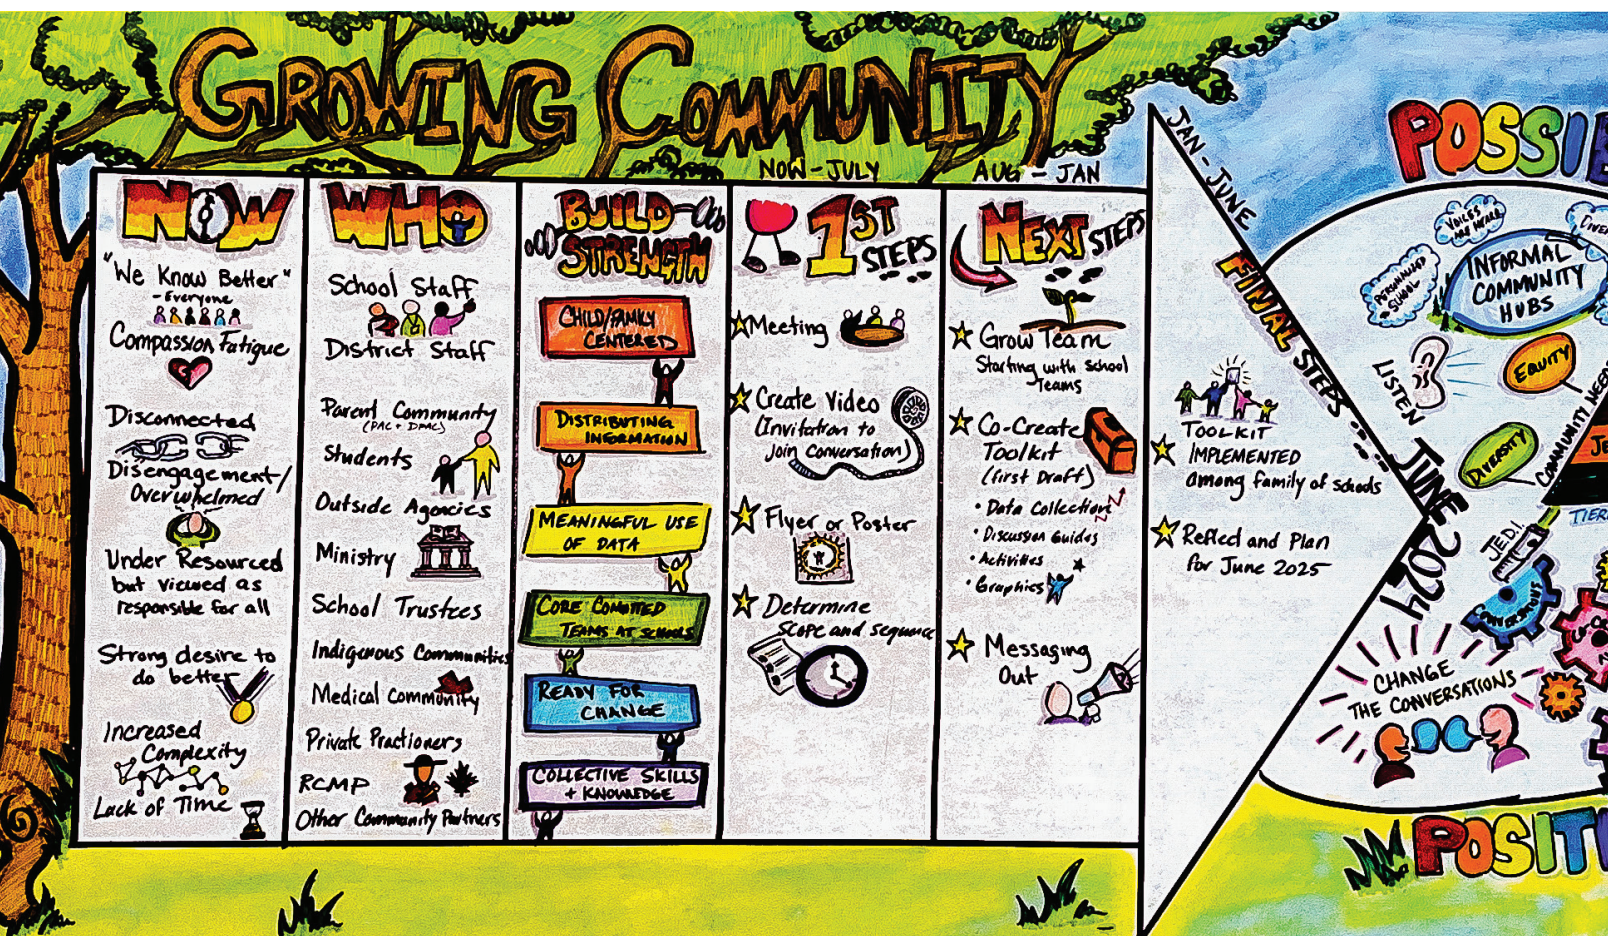 GROWING COMMUNITY
NOW
"We Know Better"
- Everyone
Compassion Fatigue
Disconnected
Disengagement/
Overwhelmed
Under Resourced
but viewed as
responsible for all
Strong desire to
do better
Increased
Complexity
Lack of Time
WHO
School Staff
District Staff
Parent Community
(PAC + DPAC)
Students
Outside Agencies
Ministry
School Trustees
Indigenous Communities
Medical Community
Private Practioners
RCMP
Other Community Partners
BUILD
STRENGTH
CHILD/FAMILY
CENTERED
DISTRIBUTING
INFORMATION
MEANINGFUL USE
OF DATA
CORE COMITTED
TEAMS AT SCHOOLS
READY FOR
CHANGE
COLLECTIVE SKILLS
+ KNOWLEDGE
NOW - JULY
1ST
STEPS
Meeting
Create Video
(Invitation to
join conversation)
Flyer or Poster
Determine
scope and sequence
AUG - JAN
NEXT STEPS
Grow Team
Starting with school
Teams
Co-Create
Toolkit
(first Draft)
• Data Collection
• Discussion Guides
• Activities
• Graphics
Messaging
Out
JAN - JUNE
FINAL STEPS
TOOLKIT
IMPLEMENTED
among family of schools
Reflect and Plan
for June 2025
JUNE 2024
POSSIB
VOICES
ARE HEARD
PERSONALIZED
SCHOOL
INFORMAL
COMMUNITY
HUBS
LISTEN
EQUITY
DIVERSITY
COMMUNITY NEEDS
JE
TIER
J.E.D.I.
CHANGE
THE CONVERSATIONS
POSITI